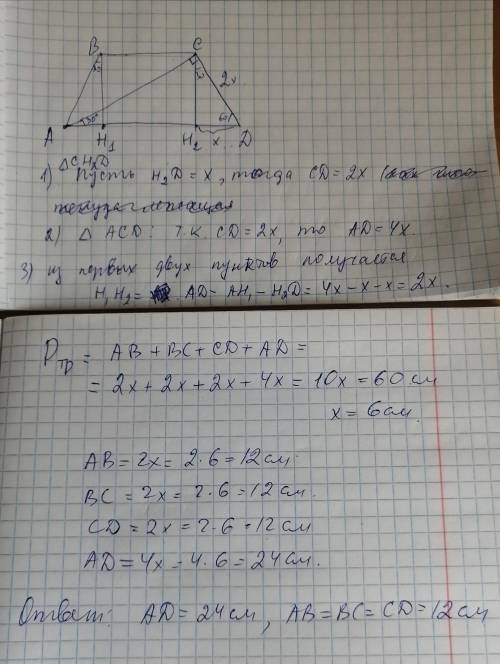 B C
30° 30° 2x
30° 60°
A H₁ H₂ x D
△CH₂D
1) Пусть H₂D = x, тогда CD = 2x (
2) △ ACD: т.к. CD = 2x, то AD = 4x
3) из первых двух пунктов получается
H₁H₂ = AD - AH₁ - H₂D = 4x - x - x = 2x.
Pтр = AB + BC + CD + AD =
= 2x + 2x + 2x + 4x = 10x = 60 см
x = 6 см.
AB = 2x = 2·6 = 12 см.
BC = 2x = 2·6 = 12 см.
CD = 2x = 2·6 = 12 см
AD = 4x = 4·6 = 24 см.
Ответ: AD = 24 см, AB = BC = CD = 12 см